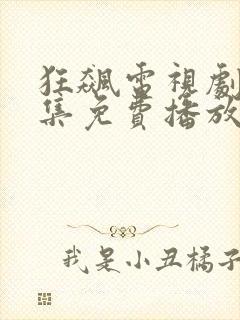 狂飆電視劇
集免費播放
我是小丑橘子